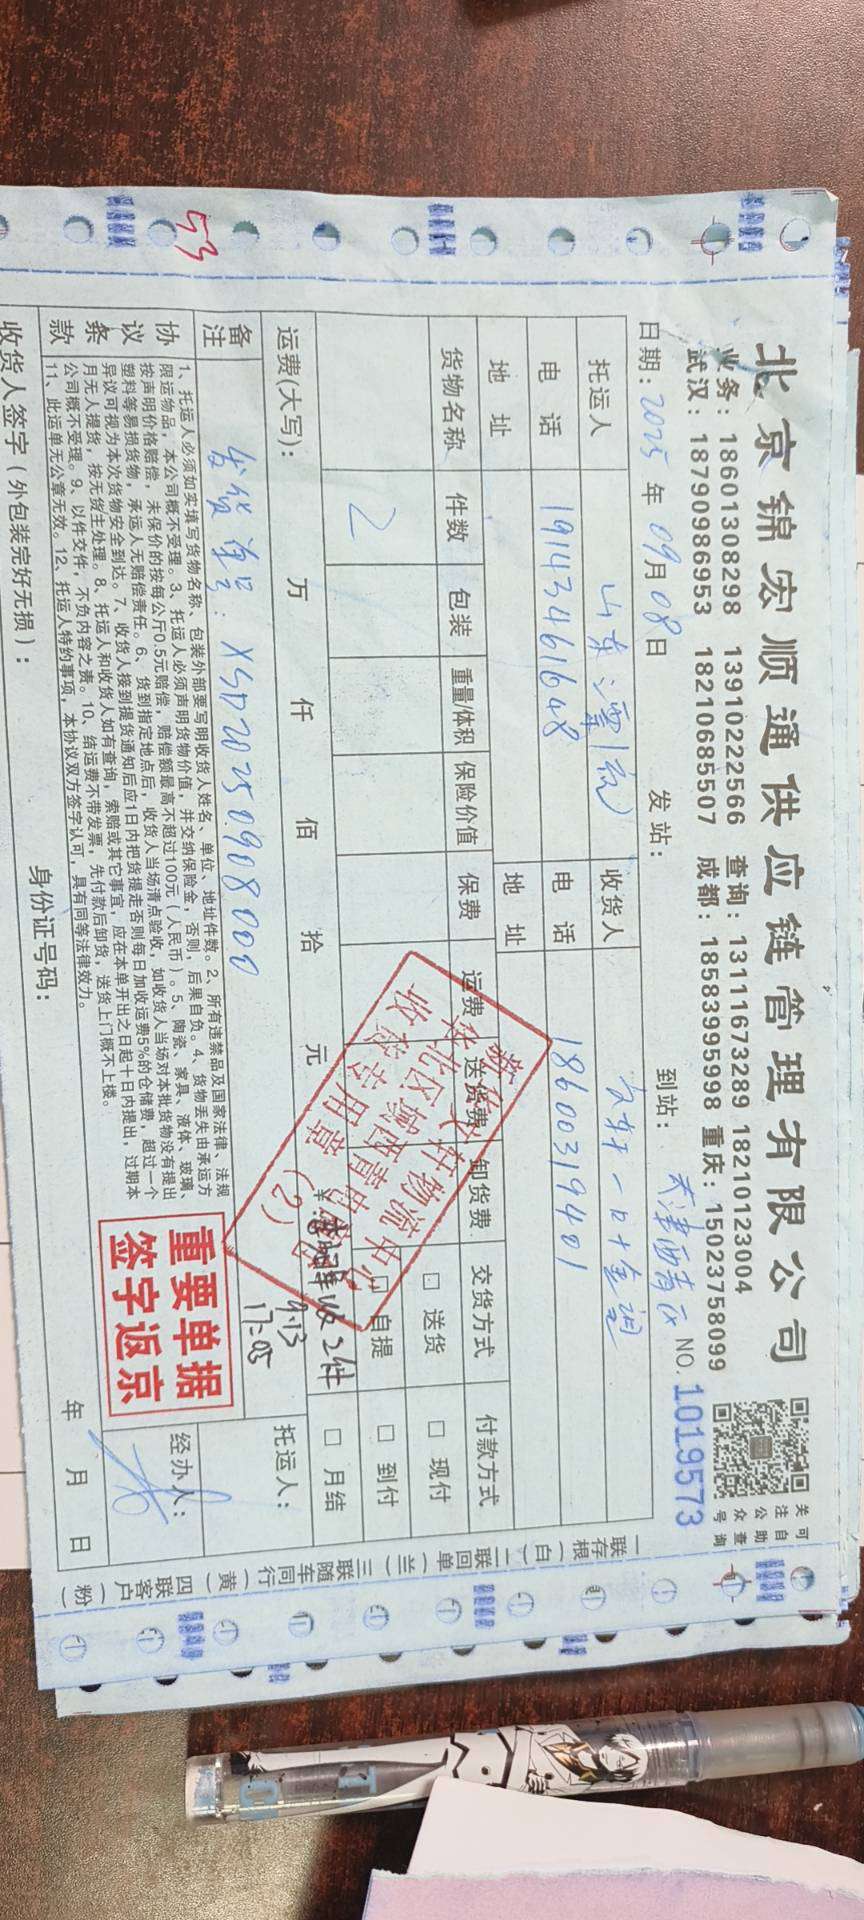 北京锦宏顺通供应链管理有限公司
业务：18601308298 13910222566 查询：13111673289 18210123004
武汉：18790986953 18210685507 成都：18583995998 重庆：15023758099
关注公众号
可自助查询
日期：2025年09月08日 发站： 到站：天津西青区 NO.1019573
托运人 山东 收货人 文轩一叶
电话 19143461648 电话 18600319401
地址 地址
货物名称 件数 包装 重量/体积 保险价值 保费 运费 送货费 卸货费 交货方式 付款方式
2
□送货 □现付
□自提 □到付
□月结
运费(大写)： 万 仟 佰 拾 元
托运人：
备注
发货单号：XSD20250908000
收2件
9.13
17:05
新华文轩物流中心
华北区域西青
收货专用章
(2)
协议条款
1、托运人必须如实填写货物名称、包装外部要写明收货人姓名、单位、地址件数。2、所有违禁品及国家法律、法规
限运物品，本公司概不受理。3、托运人必须声明货物价值，并交纳保险金，否则，后果自负。4、货物丢失由承运方
按声明价格赔偿，未保价的按每公斤0.5元赔偿，赔偿额最高不超过100元（人民币）。5、陶瓷、家具、液体、玻璃、
塑料等易损货物，承运人无赔偿责任。6、货到指定地点后，收货人当场清点验收，如收货人当场对本批货物没有提出
异议可视为本次货物安全到达。7、收货人接到提货通知后应1日内把货提走否则每日加收运费5%的仓储费，超过一个
月无人提货，按无货主处理。8、托运人和收货人如有查询，索赔或其它事宜，应在本单开出之日起十日内提出，过期本
公司概不受理。9、以件交件，不负内容之责。10、结运费不带发票，先付款后卸货，送货上门概不上楼。
11、此运单无公章无效。12、托运人特约事项，本协议双方签字认可，具有同等法律效力。
重要单据
签字返京
经办人：
收货人签字（外包装完好无损）： 身份证号码： 年 月 日
一联存根（白）二联回单（兰）三联随车同行（黄）四联客户（粉）
53